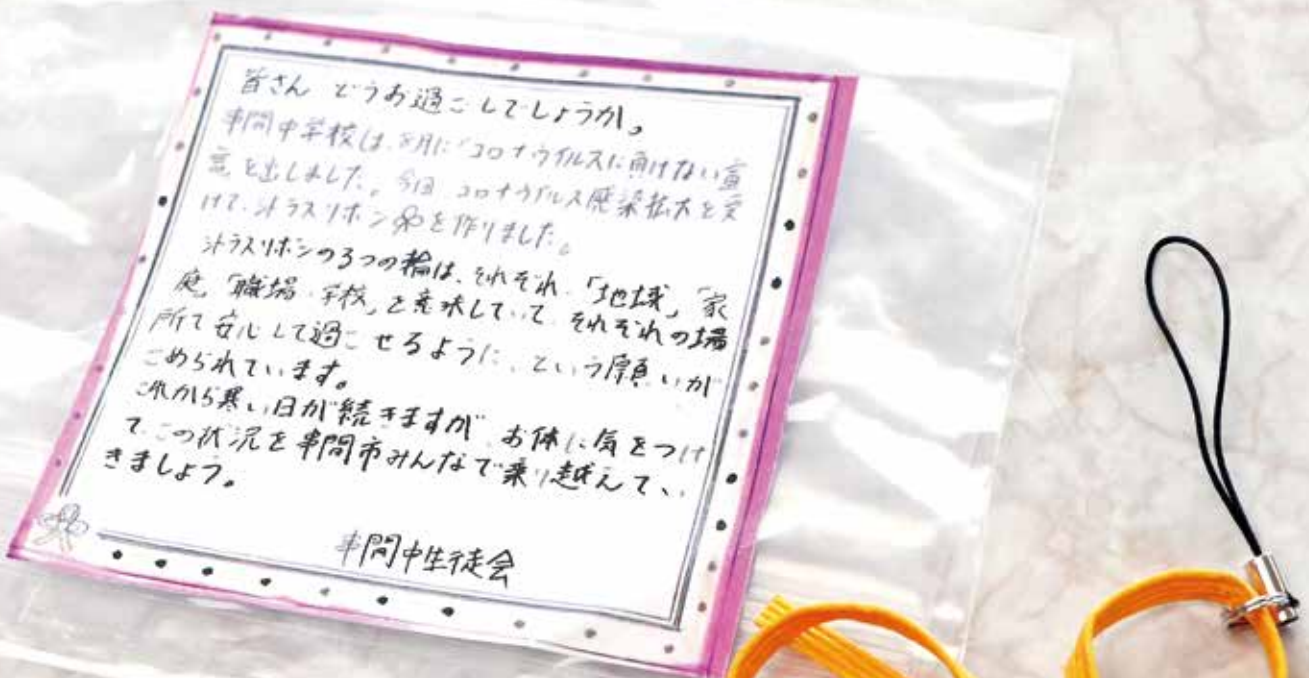 皆さん どうお過ごしでしょうか。
串間中学校は、8月に「コロナウイルスに負けない宣
言」を出しました。今回 コロナウイルス感染拡大を受
けて、シトラスリボンを作りました。
シトラスリボンの3つの輪は、それぞれ、「地域」「家
庭」「職場・学校」を意味していて、それぞれの場
所で安心して過ごせるように、という願いが
こめられています。
これから寒い日が続きますが、お体に気をつけ
て、この状況を串間市みんなで乗り越えてい
きましょう。
串間中生徒会